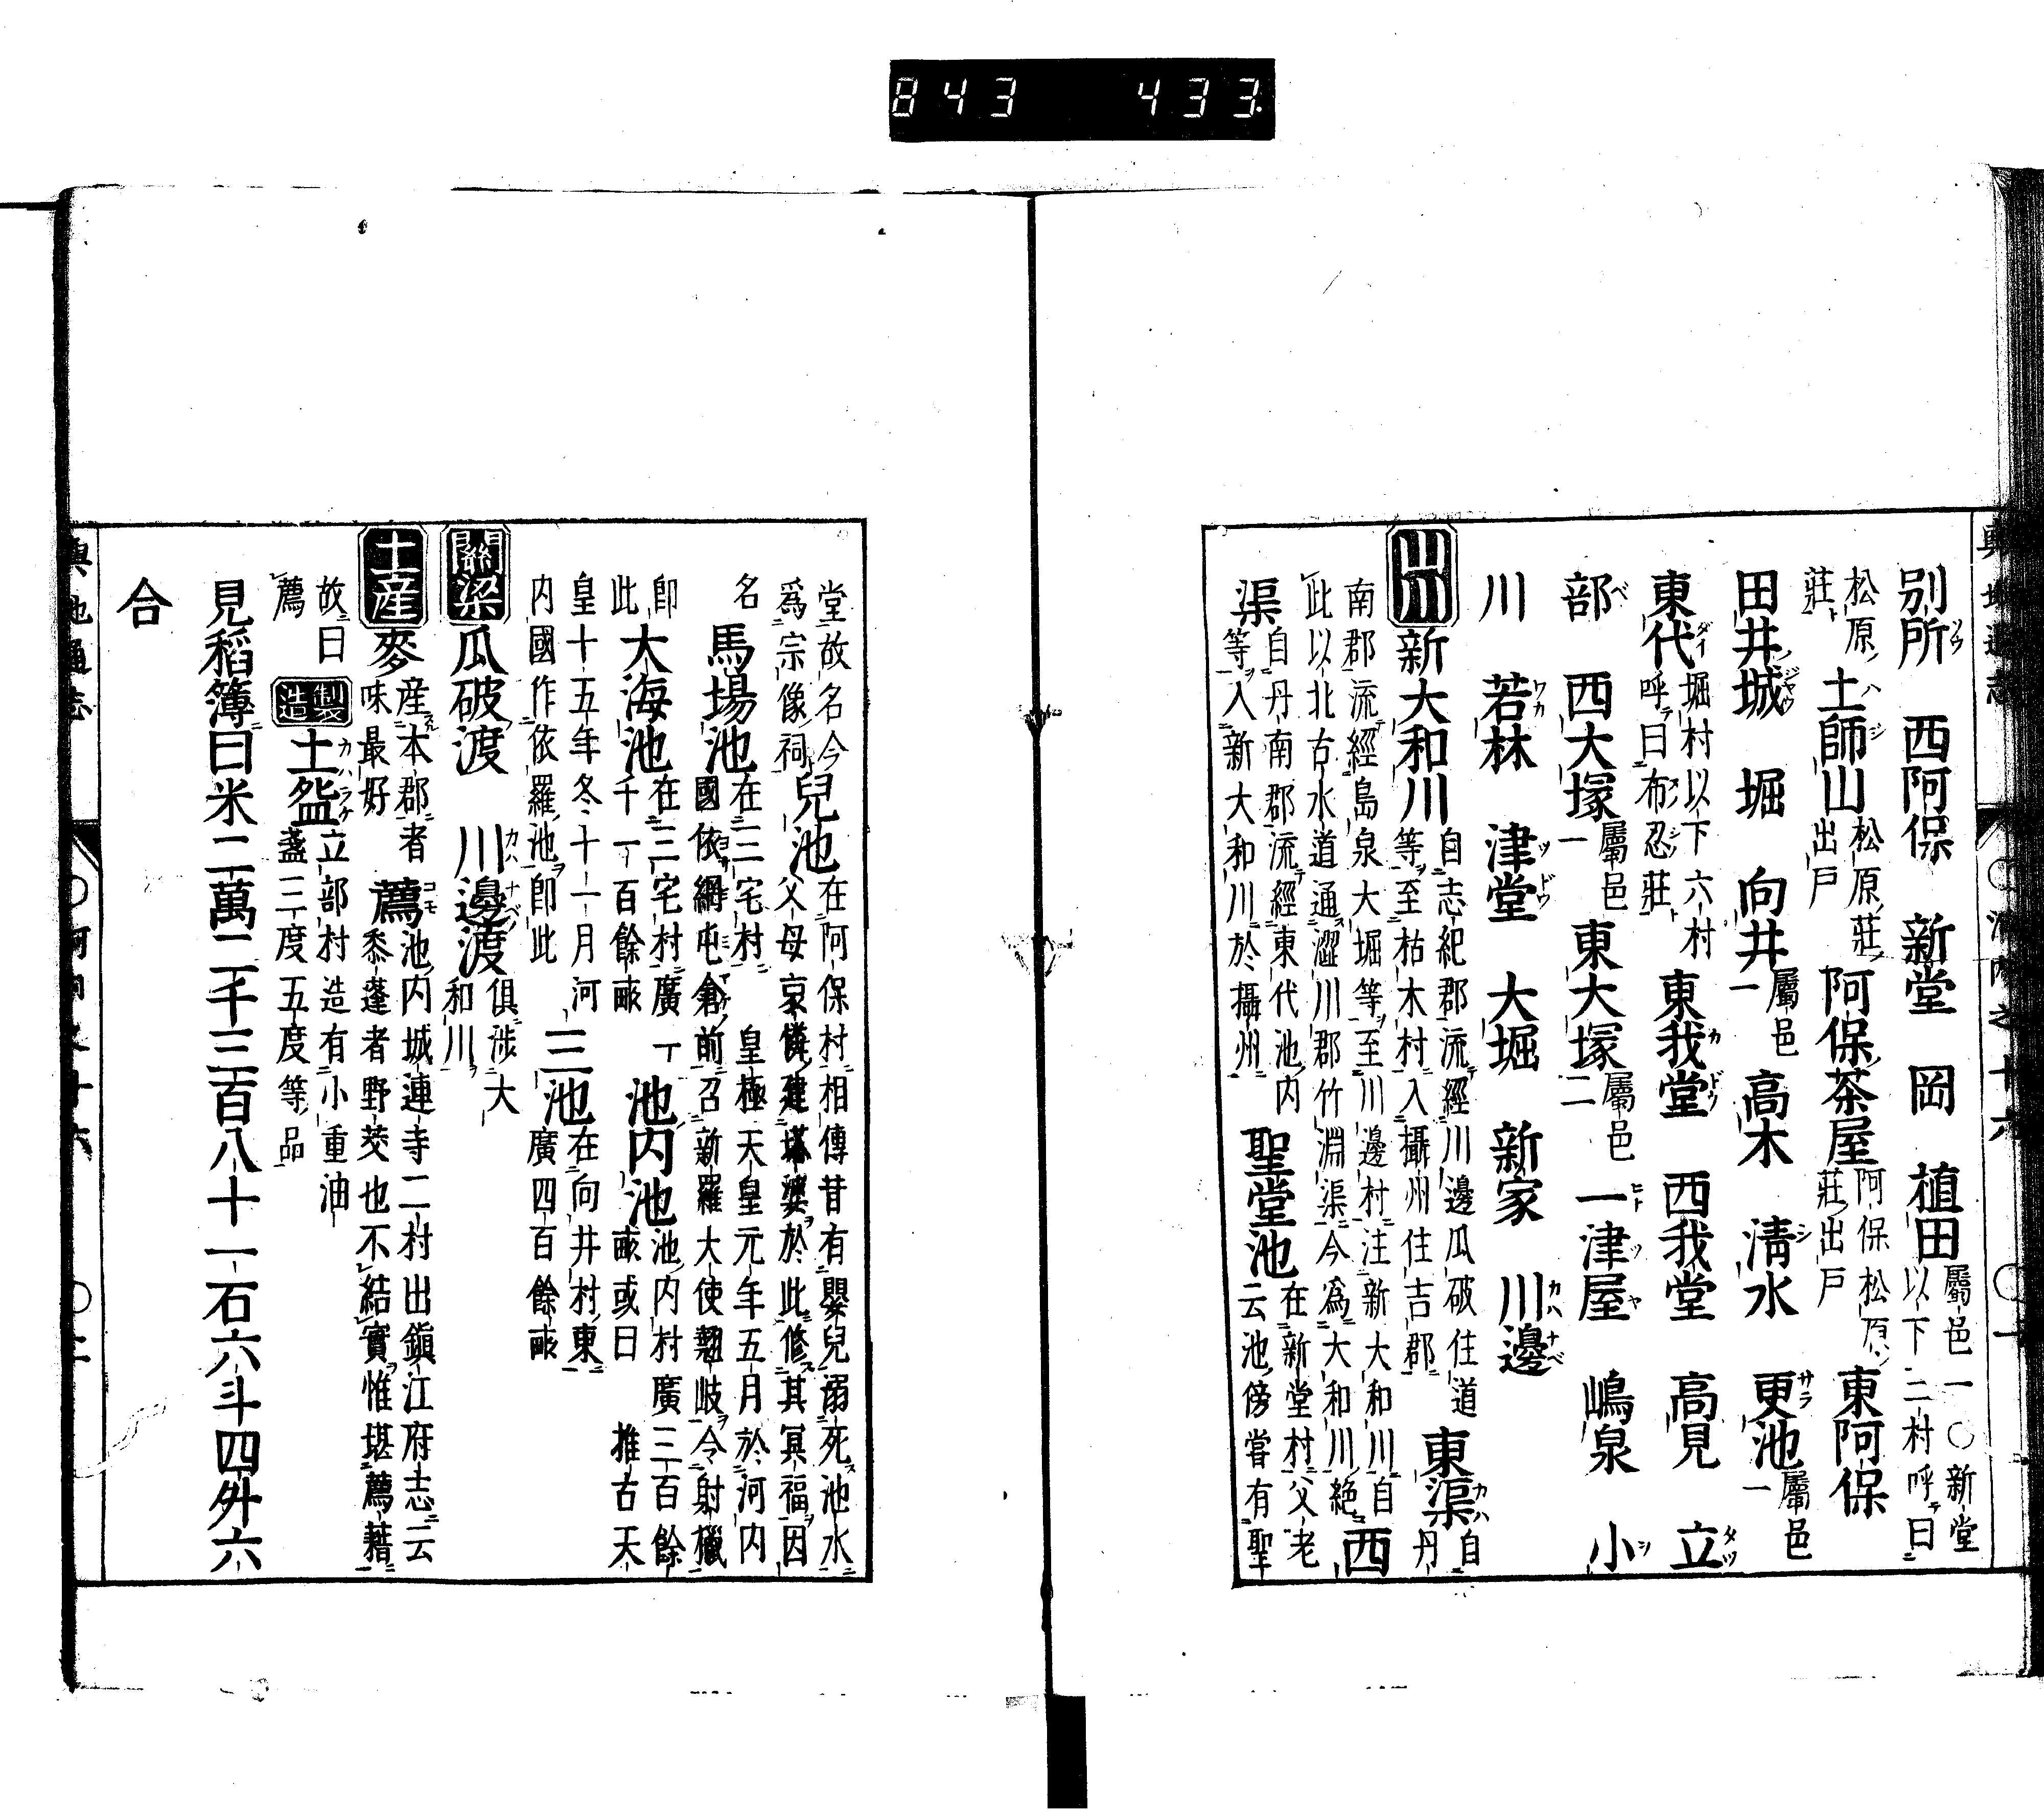 843 433
別所 西阿保 新堂 岡 植田 屬邑一〇新堂以下二村呼曰
松原莊 土師山 松原莊出戸 阿保茶屋 阿保松原莊出戸 東阿保
田井城 堀 向井 屬邑一 高木 清水 更池 屬邑一
東代 堀村以下六村呼曰布忍莊 東我堂 西我堂 高見 立
部 西大塚 屬邑一 東大塚 屬邑二 一津屋 嶋泉 小
川 若林 津堂 大堀 新家 川邊
山川 新大和川 自志紀郡流經川邊瓜破住道等至枯木村入攝州住吉郡 東渠 自丹
南郡流經島泉大堀等至川邊村注新大和川自此以北古水道通澀川郡竹淵渠今為大和川絶 西
渠 自丹南郡流經東代池内等入新大和川於攝州 聖堂池 在新堂村父老云池傍嘗有聖
堂故名今為宗像祠 兒池 在阿保村相傳昔有嬰兒溺死池水父母哀憐建塔婆於此修其冥福因
名 馬場池 在三宅村 皇極天皇元年五月於河内國依網屯倉前召新羅大使翹岐令射獵
即此 大海池 在三宅村廣一千一百餘畞 池内池 池内村廣三百餘畞或曰 推古天
皇十五年冬十一月河内國作依羅池即此 三池 在向井村東廣四百餘畞
關梁 瓜破渡 川邊渡 俱涉大和川
土産 麥 産本郡者味最好 薦 池内城連寺二村出鎮江府志云黍蓬者野茭也不結實惟堪薦藉
故曰薦 製造 土盌 立部村造有小重油盞三度五度等品
見稻簿曰米二萬二千三百八十一石六斗四升六
合